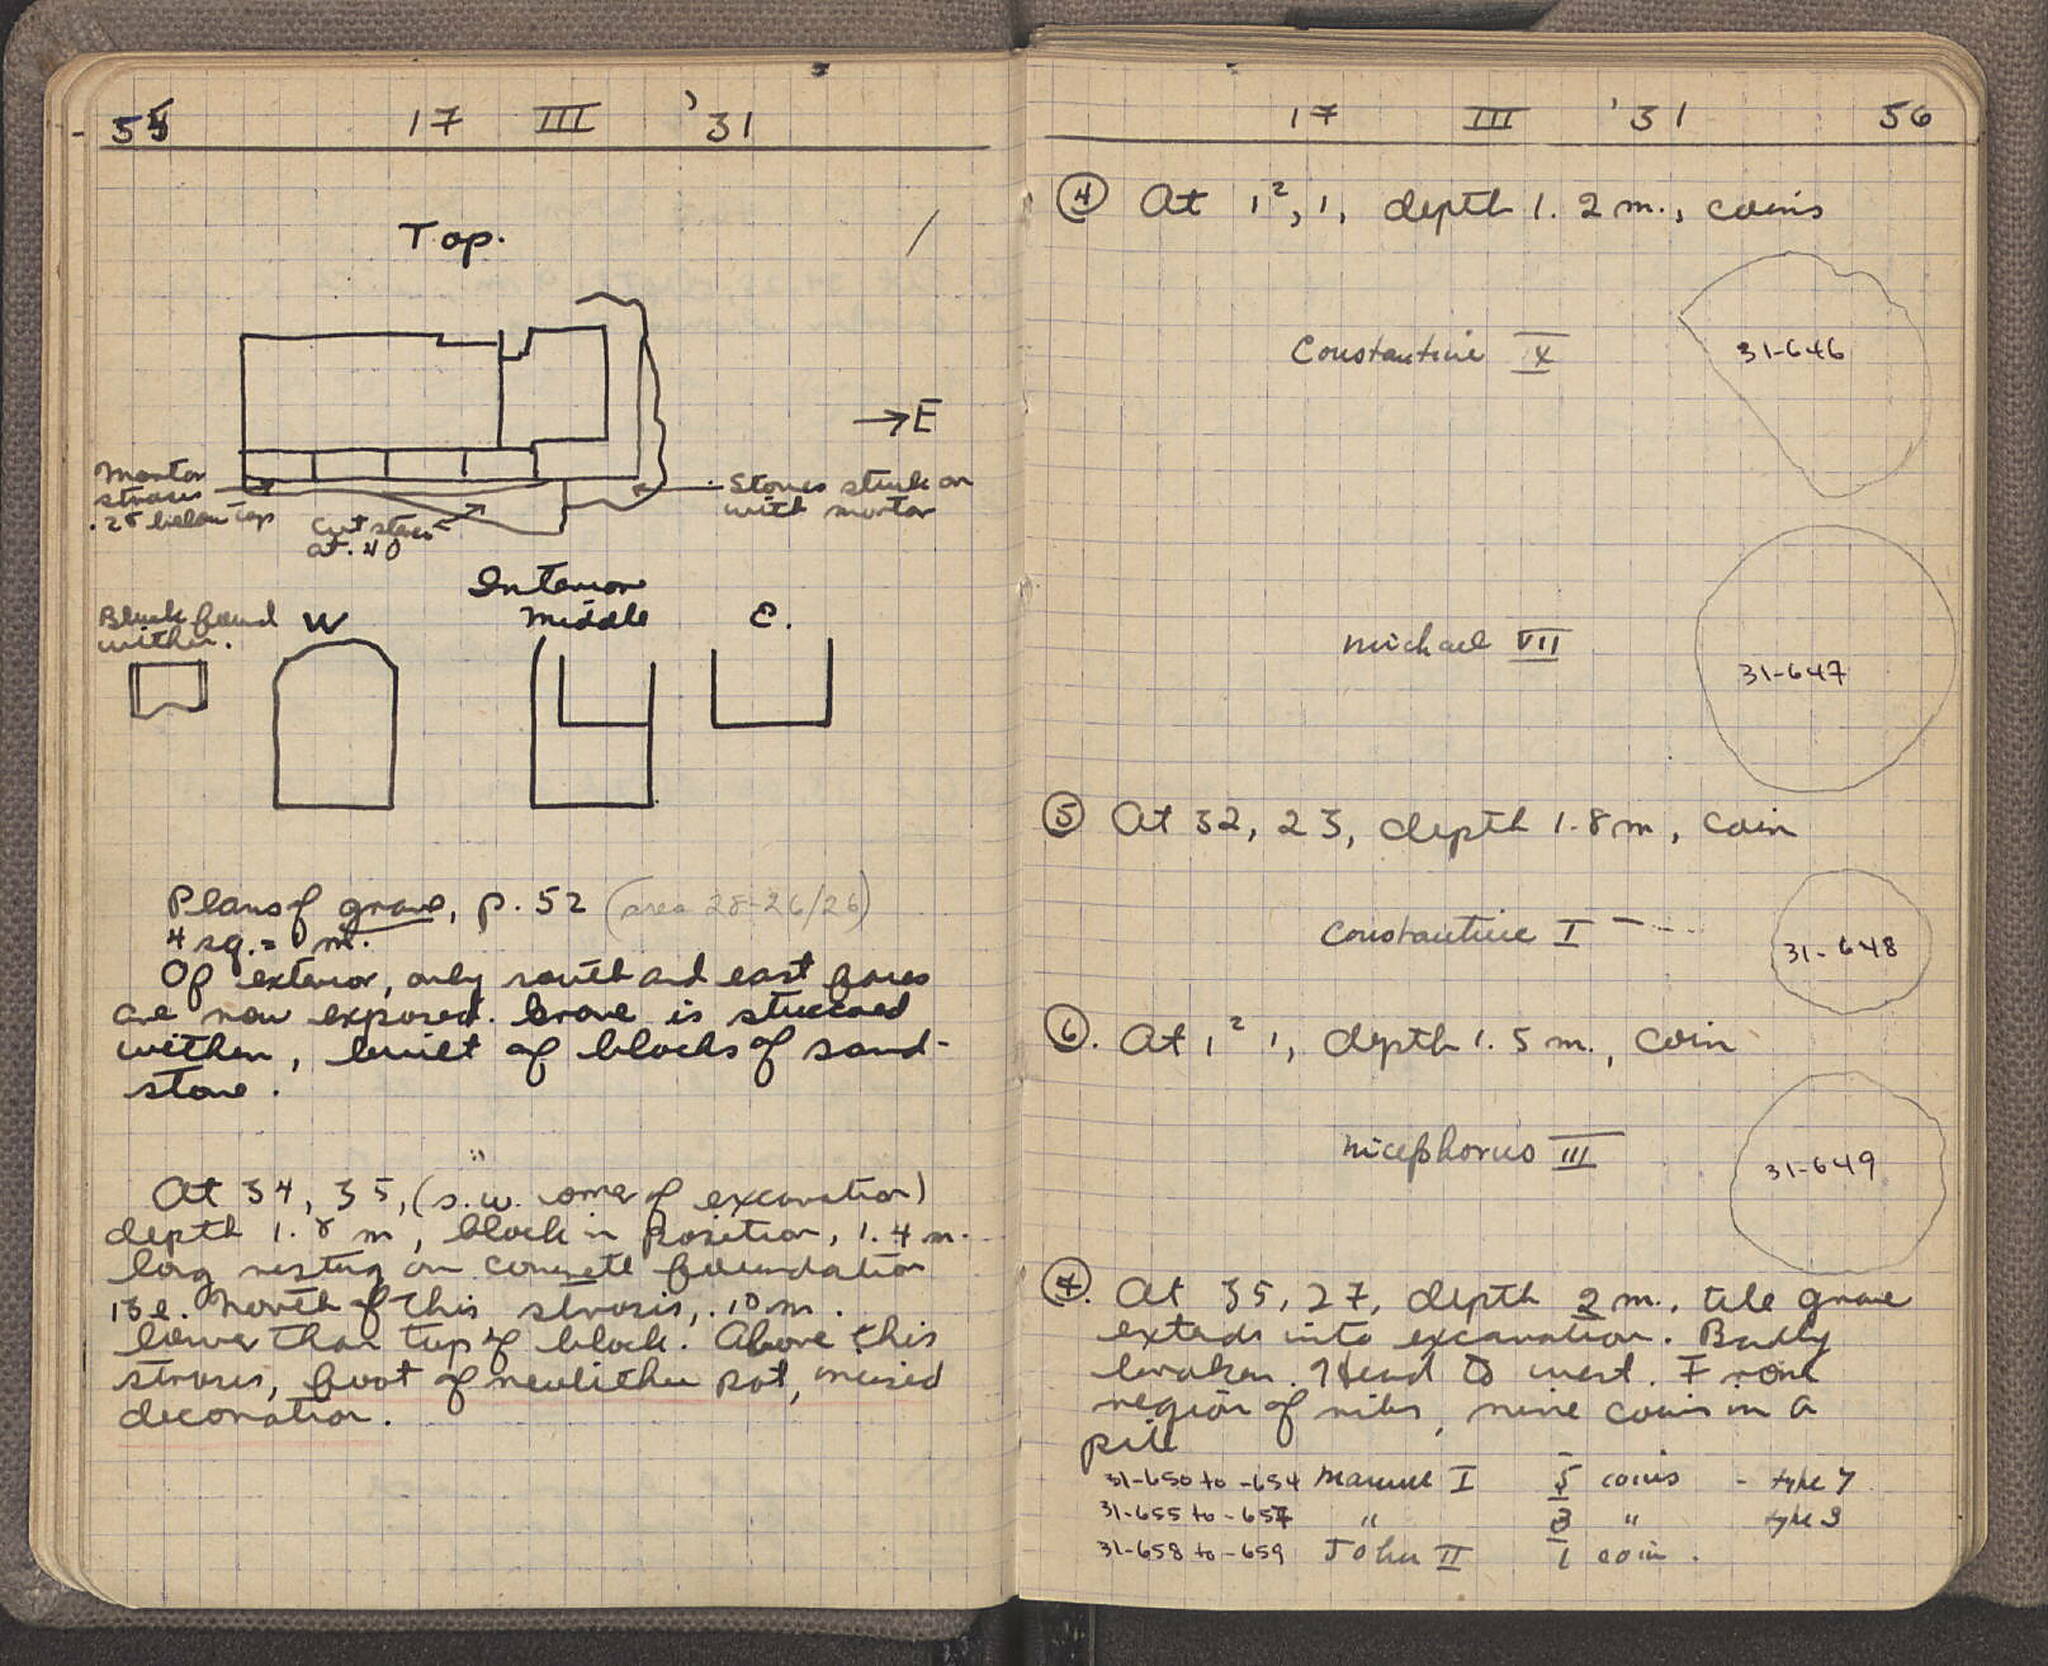 55
17 III '31
Top.
→E
Mortar
stroses
.25 below top
Cut stone
at .40
Stones stuck on
with mortar
Interior
Block found
within.
W
Middle
E.
Plans of grave, p. 52 (area 28-26/26)
4 sq. = 1 m.
Of exterior, only south and east faces
are now exposed. Grave is stuccoed
within, built of blocks of sand-
stone.
At 34, 35, (s.w. corner of excavation)
depth 1.8 m, block in position, 1.4 m.
long resting on concrete foundation
North of this strosis, .10 m.
lower than top of block. Above this
stroses, foot of neolithic pot, incised
decoration.
17 III '31 56
④ At 1², 1, depth 1.2 m., coins
Constantine X 31-646
Michael VII 31-647
⑤ At 32, 23, depth 1.8 m, coin
Constantine I - - - - 31-648
⑥. At 1² 1, depth 1.5 m., coin
Nicephorus III 31-649
⑦. At 35, 27, depth 2 m., tile grave
extends into excavation. Badly
broken. Head to west. From
region of ribs, nine coins in a
pile
31-650 to -654 Manuel I 5 coins - type 7
31-655 to -657 " 3 " type 3
31-658 to -659 John II 1 coin.